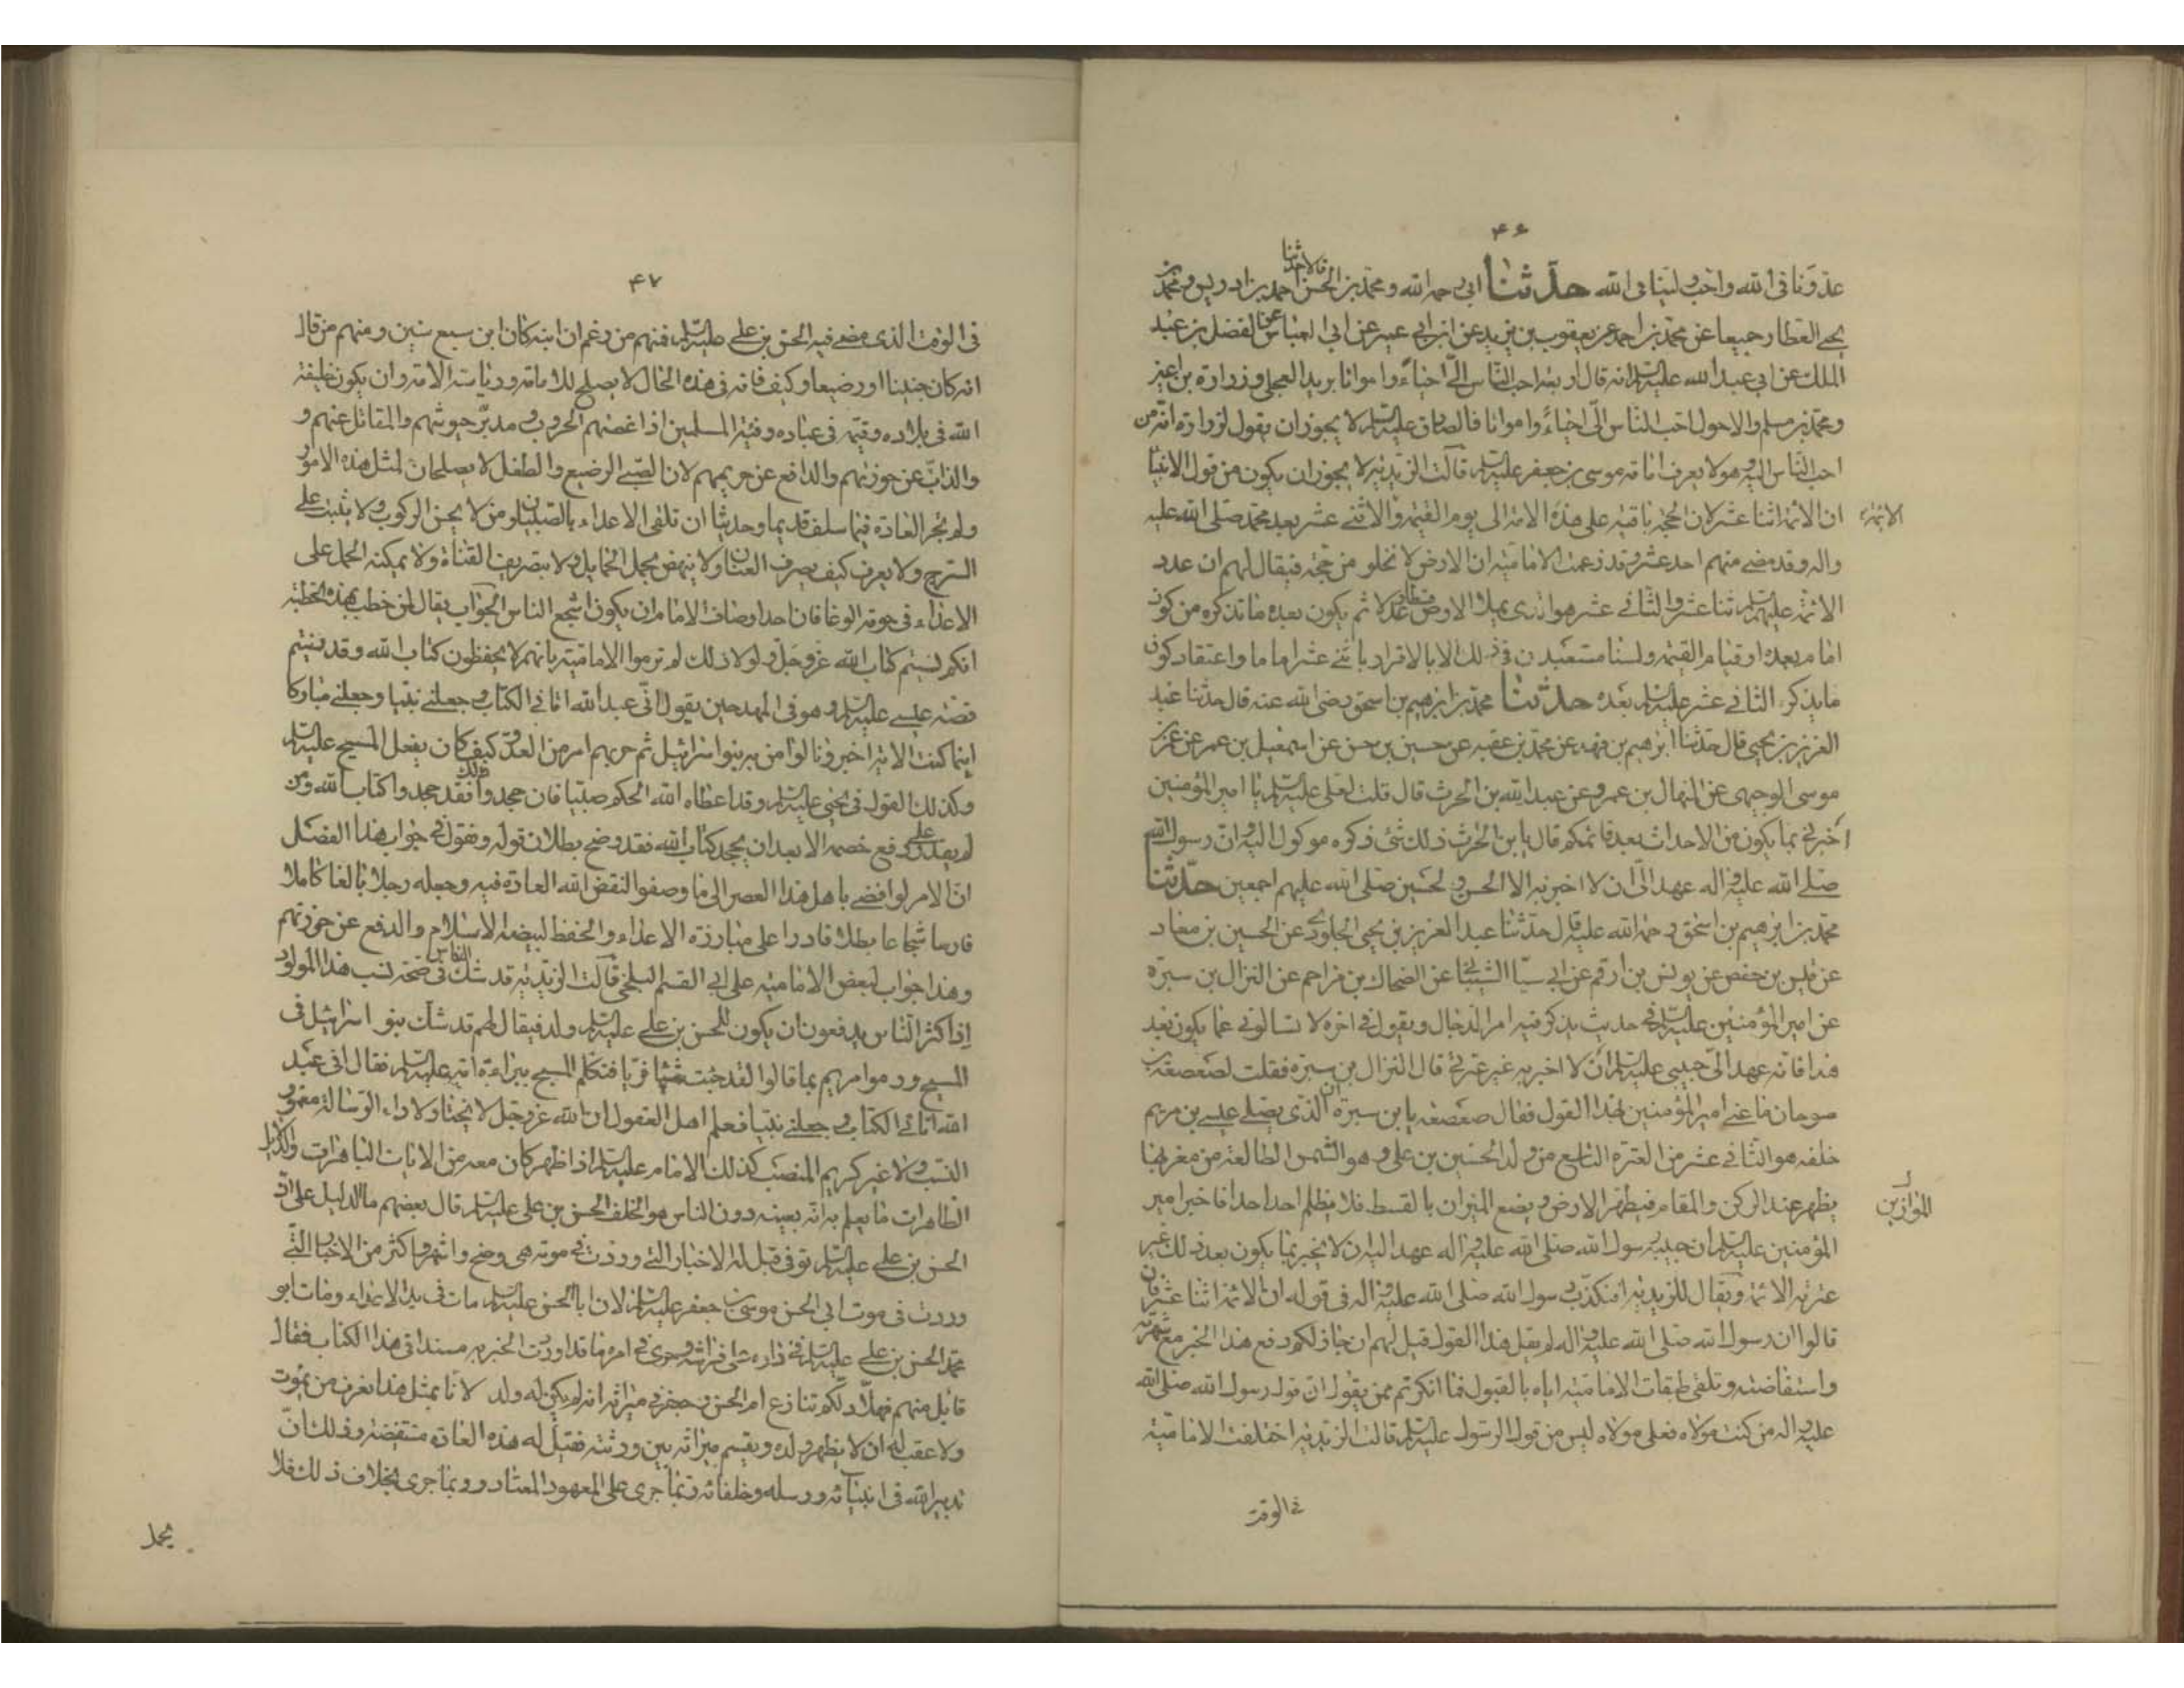 ۴۶
عدونا فی الله واحب ولینا فی الله حدثنا ابی رحمه الله ومحمد بن الحسن قالا حدثنا احمد بن ادریس ومحمد بن
یحیی العطار جمیعا عن محمد بن احمد عن یعقوب بن یزید عن ابن ابی عمیر عن ابی العباس الفضل بن عبد
الملک عن ابی عبد الله علیه السلم انه قال اربعة احب الناس الیّ احیاءً وامواتا برید العجلی وزرارة بن اعین
ومحمد بن مسلم والاحول احب الناس الیّ احیاءً وامواتا فالصادق علیه السلم لا یجوز ان یقول لزرارة انه من
احب الناس الیه وهو لا یعرف امامة موسی بن جعفر علیه السلم قالت الزیدیه لا یجوز ان یکون من قول الانبیا
ان الائمة اثنا عشر لان الحجة باقیة علی هذه الامة الی یوم القیمة والاثنی عشر بعد محمد صلی الله علیه
الائمة
واله وقد مضی منهم احد عشر وقد زعمت الامامیة ان الارض لا تخلو من حجة فیقال لهم ان عدد
الائمة علیهم السلم اثنا عشر والثانی عشر هو الذی یملا الارض قسطا وعدلا ثم یکون بعده ما یذکره من کون
امام بعده او قیام القیمة ولسنا مستعبدین فی ذلک الا بالاقرار باثنی عشر اماما واعتقاد کون
ما یذکره الثانی عشر علیه السلم بعده حدثنا محمد بن ابرهیم بن اسحق رضی الله عنه قال حدثنا عبد
العزیز بن یحیی قال حدثنا ابرهیم بن فهد عن محمد بن عقبه عن حسین بن حسن عن اسمعیل بن عمر عن عمر بن
موسی الوجیهی عن المنهال بن عمرو عن عبد الله بن الحرث قال قلت لعلی علیه السلم یا امیر المؤمنین
اخبرنی بما یکون من الاحداث بعد قائمکم قال یا بن الحرث ذلک شئ ذکره موکول الیه وان رسول الله
صلی الله علیه واله عهد الیّ ان لا اخبر به الا الحسن والحسین صلی الله علیهم اجمعین حدثنا
محمد بن ابرهیم بن اسحق رحمة الله علیه قال حدثنا عبد العزیز بن یحیی الجلودی عن الحسین بن معاد
عن قیس بن حفص عن یونس بن ارقم عن ابی سیار الشیبانی عن الضحاک بن مزاحم عن النزال بن سبرة
عن امیر المؤمنین علیه السلم فی حدیث یذکر فیه امر الدجال ویقول فی اخره لا تسالونی عما یکون بعد
هذا فانه عهد الیّ حبیبی علیه السلم ان لا اخبر به غیر عترتی قال النزال بن سبرة فقلت لصعصعة بن
صوحان ما عنی امیر المؤمنین بهذا القول فقال صعصعه یا بن سبرة ان الذی یصلی عیسی بن مریم
خلفه هو الثانی عشر من العترة التاسع من ولد الحسین بن علی وهو الشمس الطالعة من مغربها
یظهر عند الرکن والمقام فیطهر الارض ویضع المیزان بالقسط فلا یظلم احد احدا فاخبر امیر
الموازین
المؤمنین علیه السلم ان حبیبه رسول الله صلی الله علیه واله عهد الیه ان لا یخبر بما یکون بعد ذلک غیر
عترته الائمة ویقال للزیدیة افنکذب رسول الله صلی الله علیه واله فی قوله ان الائمة اثنا عشر فان
قالوا ان رسول الله صلی الله علیه واله لم یقل هذا القول قیل لهم ان جاز لکم دفع هذا الخبر مع شهرته
واستفاضته وتلقی طبقات الامامیة ایاه بالقبول فما انکرتم ممن یقول ان قول رسول الله صلی الله
علیه واله من کنت مولاه فعلی مولاه لیس من قول الرسول علیه السلم قالت الزیدیه اختلفت الامامیة
فی الوقت
۴۷
فی الوقت الذی مضی فیه الحسن بن علی علیه السلم فمنهم من زعم ان ابنه کان ابن سبع سنین ومنهم من قال
انه کان جنینا او رضیعا وکیف فانه فی هذه الحال لا یصلح للامامة ورئاسة الامة وان یکون خلیفة
الله فی بلاده وقیمه فی عباده وفئة المسلمین اذا عضتهم الحروب ومدبر جیوشهم والمقاتل عنهم و
والذابّ عن حوزتهم والدافع عن حریمهم لان الصبی الرضیع والطفل لا یصلحان لمثل هذه الامور
ولم تجر العادة فیما سلف قدیما وحدیثا ان تلقی الاعداء بالصبیان ومن لا یحسن الرکوب ولا یثبت علی
السرج ولا یعرف کیف یصرف العنان ولا ینهض بحمل الحمایل ولا بتصریف القناة ولا یمکنه الحمل علی
الاعداء فی حومة الوغا فان احد اوصاف الامام ان یکون اشجع الناس الجواب یقال لمن خطب بهذه الخطبة
انکم نسیتم کتاب الله عز وجل ولولا ذلک لم ترموا الامامیة بانهم لا یحفظون کتاب الله وقد نسیتم
قصة عیسی علیه السلم وهو فی المهد حین یقول انی عبد الله اتانی الکتاب وجعلنی نبیا وجعلنی مبارکا
اینما کنت الایة اخبرونا لو امن به بنو اسرائیل ثم حزبهم امر من العدو کیف کان یفعل المسیح علیه السلم
وکذلک القول فی یحیی علیه السلم وقد اعطاه الله الحکم صبیا فان جحدوا ذلک فقد جحدوا کتاب الله ومن
لم یقدر علی دفع خصمه الا بعد ان یجحد کتاب الله فقد وضح بطلان قوله ونقول فی جواب هذا الفصل
ان الامر لو افضی باهل هذا العصر الی ما وصفوا لنقض الله العادة فیه وجعله رجلا بالغا کاملا
فارسا شجاعا بطلا قادرا علی مبارزة الاعداء والحفظ لبیضة الاسلام والدفع عن حوزتهم
وهذا جواب لبعض الامامیة علی ابی القسم البلخی قالت الزیدیه قد شک الناس فی صحة نسب هذا المولود
اذ اکثر الناس یدفعون ان یکون للحسن بن علی علیه السلم ولد فیقال لهم قد شک بنو اسرائیل فی
المسیح ورموا مریم بما قالوا لقد جئت شیئا فریا فتکلم المسیح ببراءة امه علیه السلم فقال انی عبد
الله اتانی الکتاب وجعلنی نبیا فعلم اهل العقول ان الله عز وجل لا یختار لاداء الرسالة مغمور
النسب ولا غیر کریم المنصب کذلک الامام علیه السلم اذا ظهر کان معه من الایات الباهرات والدلایل
الظاهرات ما یعلم به انه بعینه دون الناس هو الخلف الحسن بن علی علیه السلم قال بعضهم ما الدلیل علی ان
الحسن بن علی علیه السلم توفی قیل له الاخبار التی وردت فی موته هی اوضح واشهر واکثر من الاخبار التی
وردت فی موت ابی الحسن موسی بن جعفر علیه السلم لان ابا الحسن علیه السلم مات فی ید الاعداء ومات ابو
محمد الحسن بن علی علیه السلم فی داره علی فراشه وجری فی امره ما قد اوردت الخبر به مسندا فی هذا الکتاب فقال
قائل منهم فهلا دلکم تنازع ام الحسن وجعفر فی میراثه انه لم یکن له ولد لانا بمثل هذا نعرف من یموت
ولا عقب له ان لا یظهر ولده ویقسم میراثه بین ورثته فقیل له هذه العادة منتقضة وذلک ان
تدبیر الله فی انبیائه ورسله وخلفائه ربما جری علی المعهود المعتاد وربما جری بخلاف ذلک فلا
یحمل